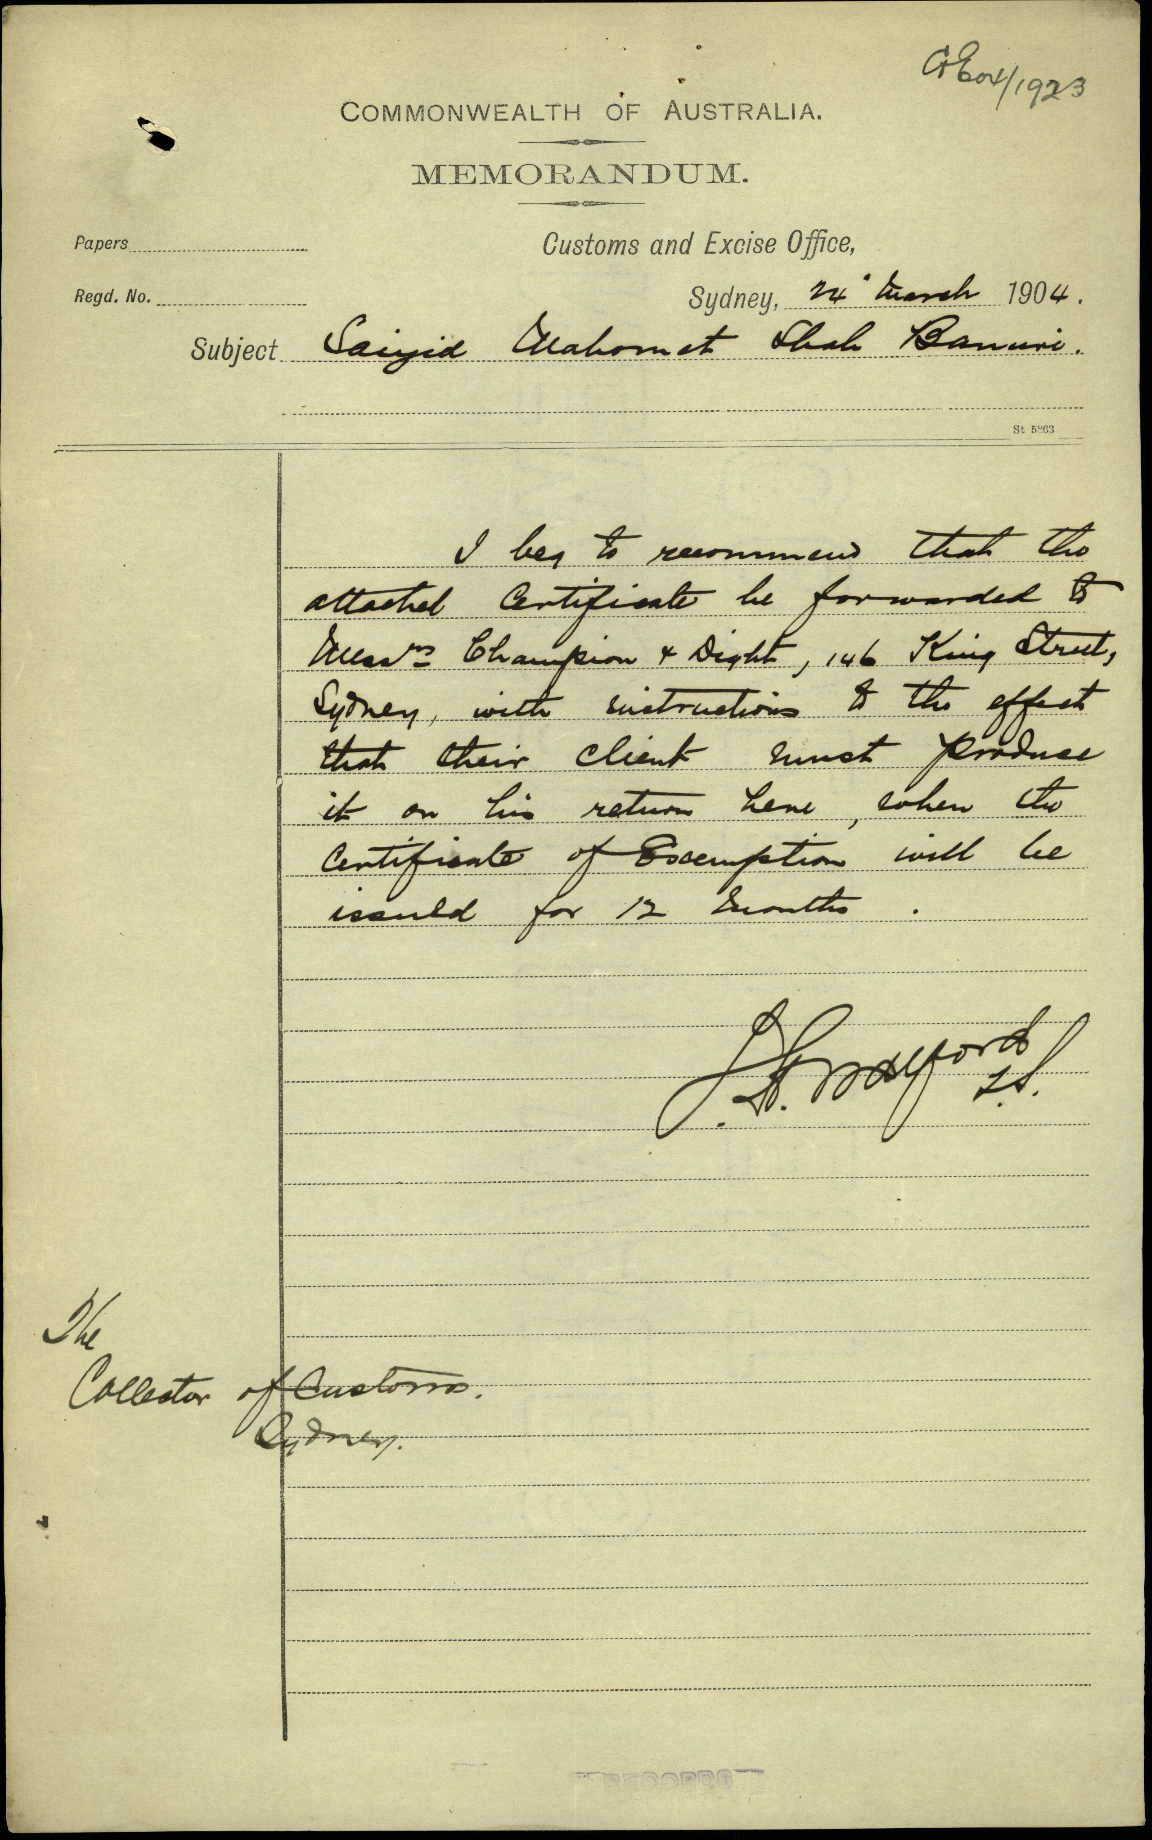 CE04/1923
COMMONWEALTH OF AUSTRALIA.
MEMORANDUM.
Papers
Customs and Excise Office,
Regd. No.
Sydney, 24 March 1904.
Subject Saiyid Mahomet Shah Banuri.
St 5863
I beg to recommend that the
attached Certificate be forwarded to
Messrs Champion & Dight, 146 King Street,
Sydney, with instructions to the effect
that their client must produce
it on his return here, when the
Certificate of Exemption will be
issued for 12 months.
J.
The
Collector of Customs.
Sydney.